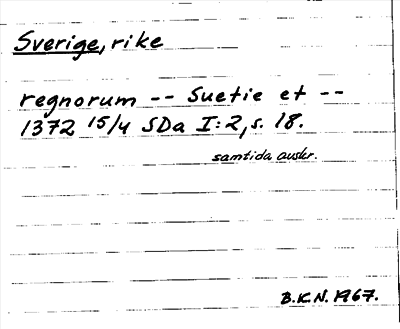 Sverige, rike
regnorum -- Suetie et --
1372 15/4 SDa I:2, s. 18.
samtida avskr.
B.K.N. 1967.